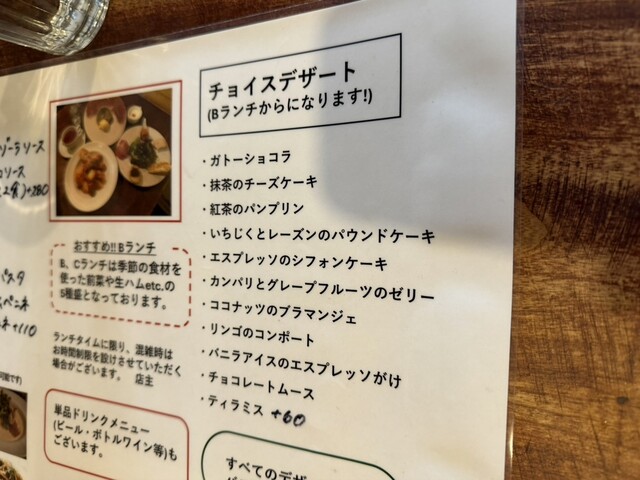 ゾーラソース
ソース
+280
パスタ
ペンネ
+110
可能です)
おすすめ!! Bランチ
B、Cランチは季節の食材を
使った前菜や生ハムetc.の
5種盛となっております。
ランチタイムに限り、混雑時は
お時間制限を設けさせていただく
場合がございます。 店主
単品ドリンクメニュー
(ビール・ボトルワイン等)も
ございます。
チョイスデザート
(Bランチからになります!)
・ガトーショコラ
・抹茶のチーズケーキ
・紅茶のパンプリン
・いちじくとレーズンのパウンドケーキ
・エスプレッソのシフォンケーキ
・カンパリとグレープフルーツのゼリー
・ココナッツのブラマンジェ
・リンゴのコンポート
・バニラアイスのエスプレッソがけ
・チョコレートムース
・ティラミス +60
すべてのデザ